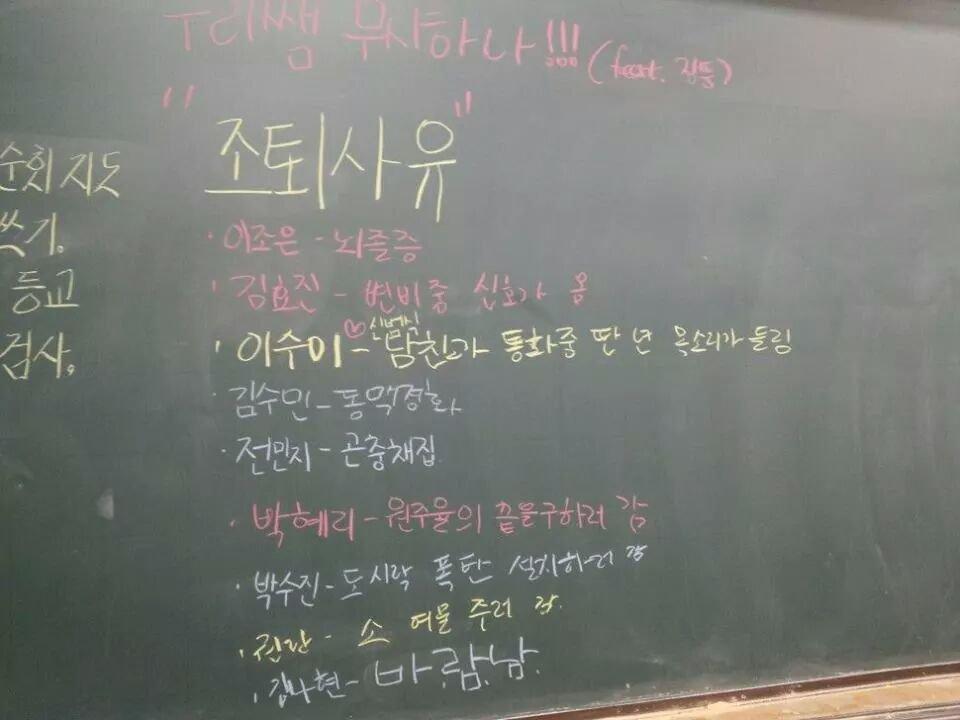 우리쌤 무사하나!!! (feat. 정통)
"조퇴사유"
순회지도
쓰기.
등교
검사.
· 이조은 - 뇌졸중
· 김효진 - 변비중 신호가 옴
· 이수이 - 남친과 통화중 딴 년 목소리가 들림
· 김수민 - 동맥경화
· 전민지 - 곤충채집
· 박혜리 - 원주율의 끝을구하러 감
· 박수진 - 도시락 폭탄 설치하러 감
· 권란 - 소 여물 주러 감.
· 김나현 - 바.람.남.